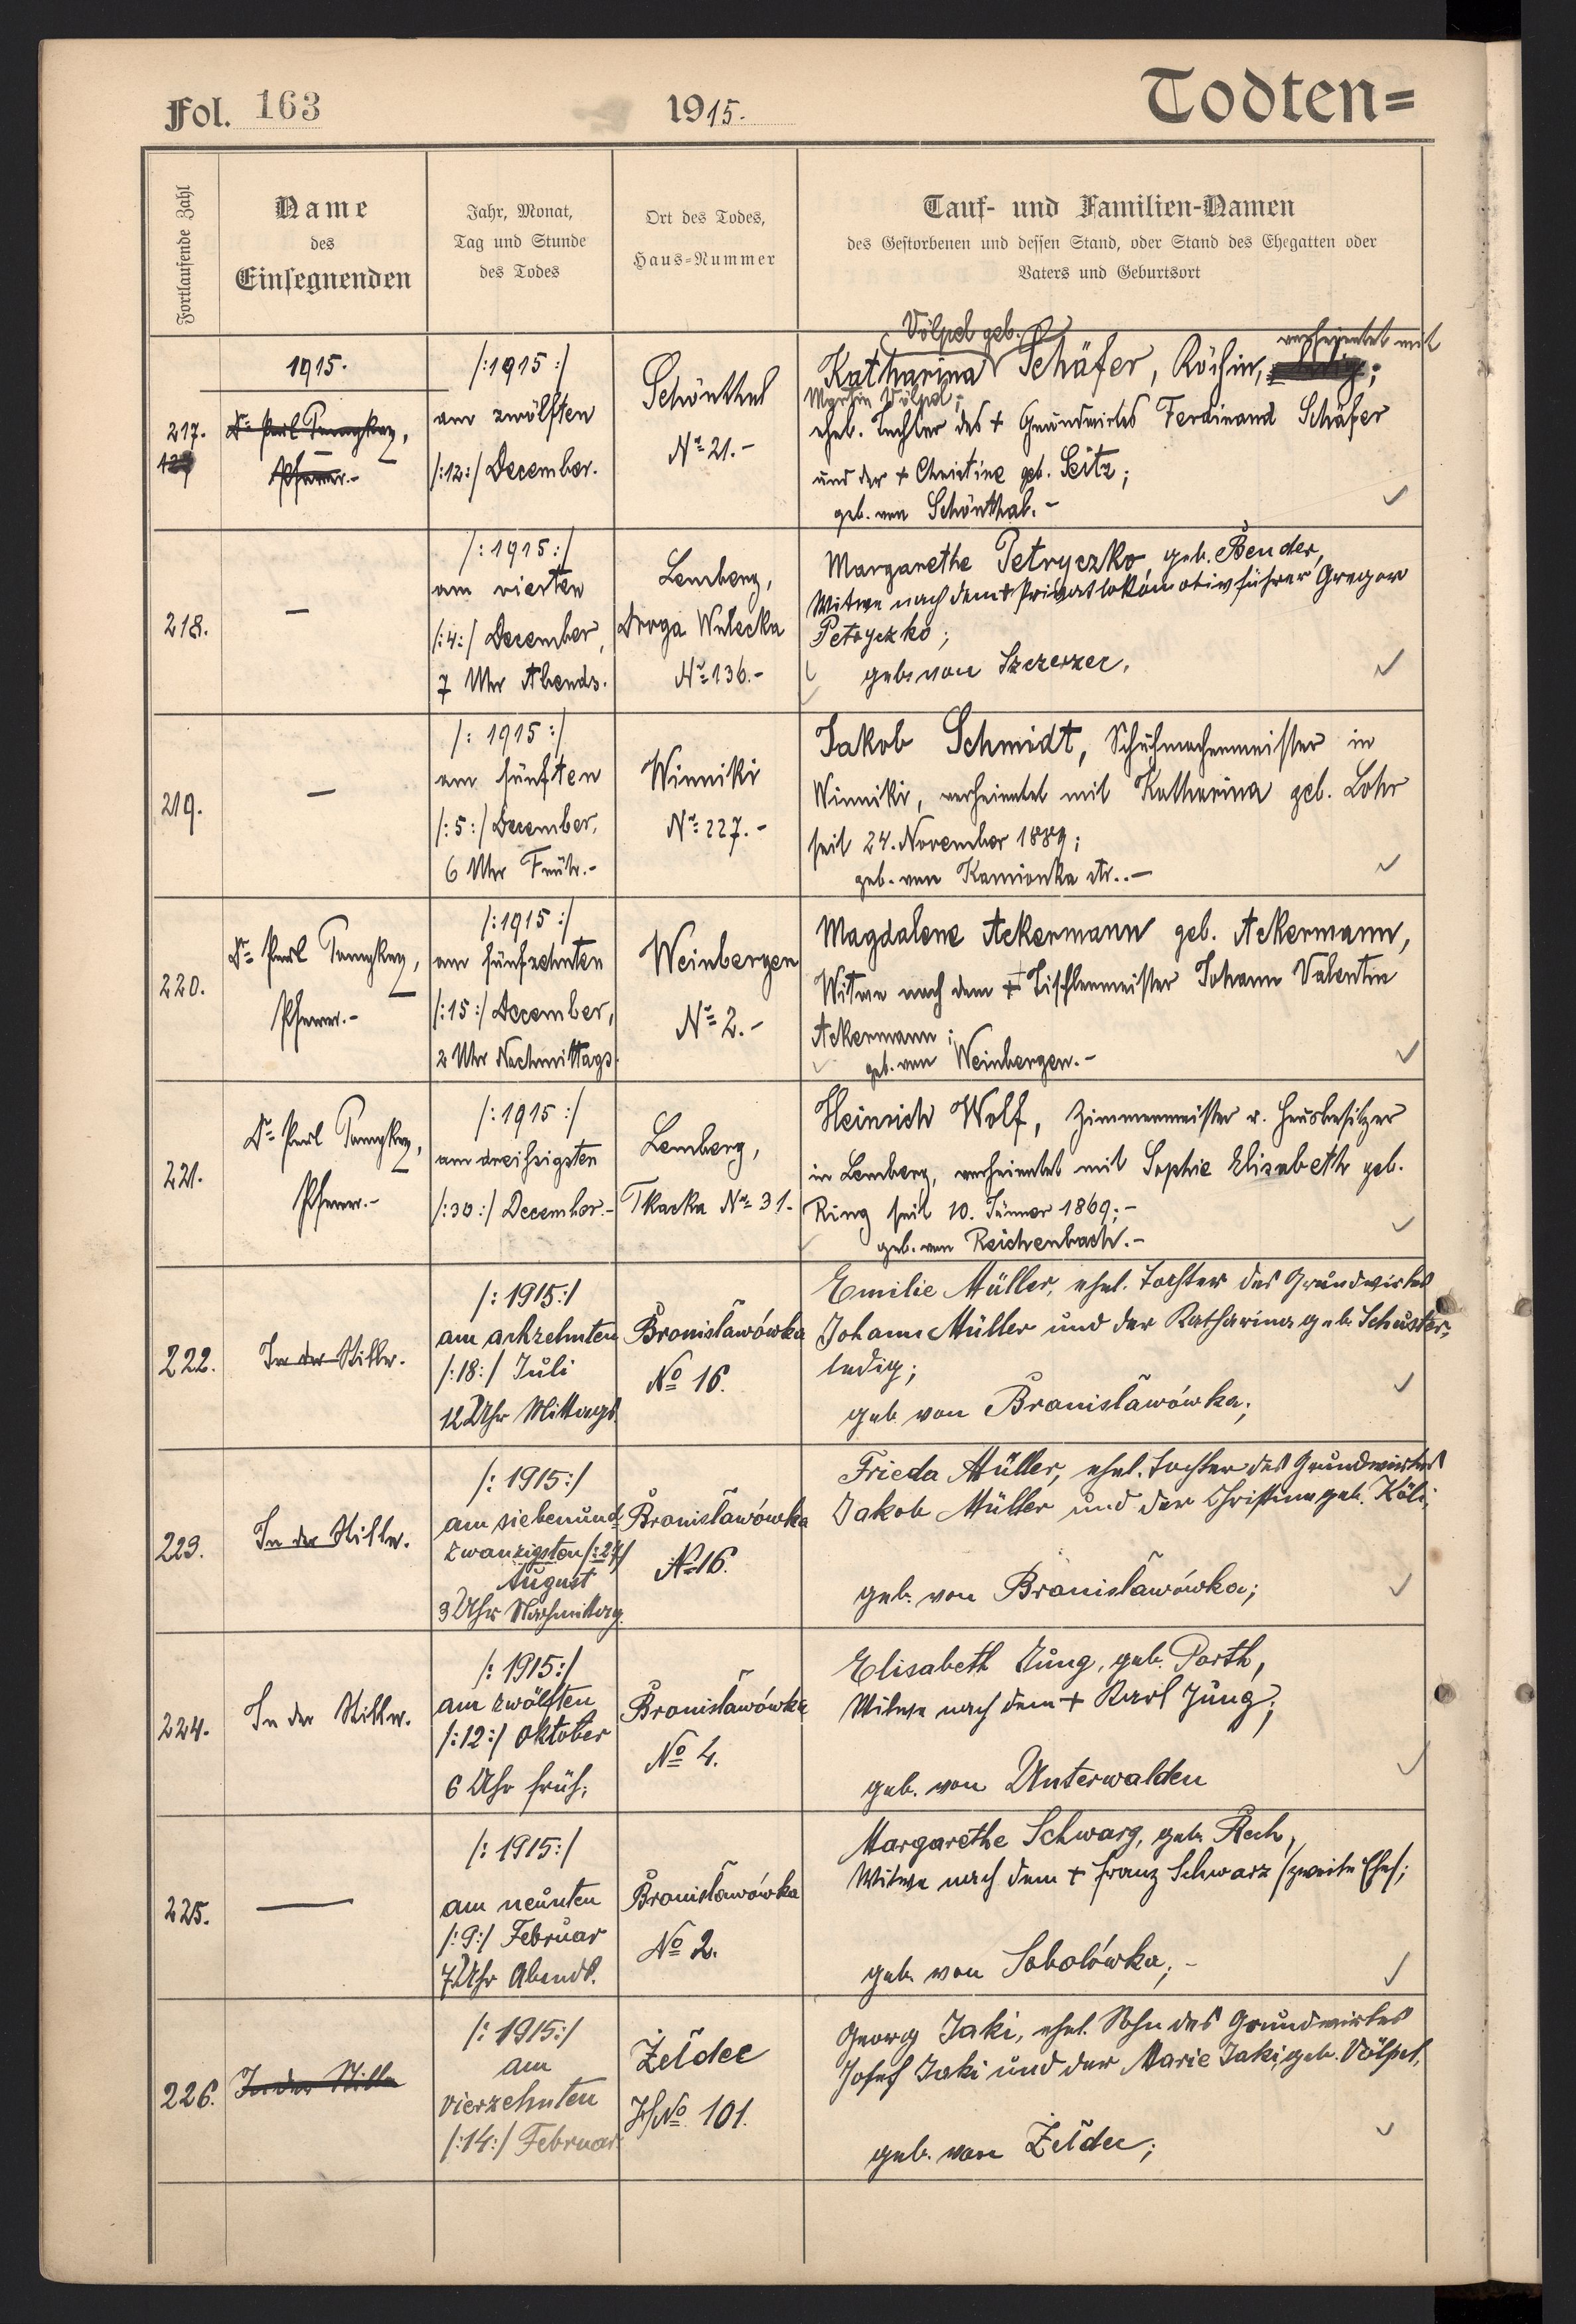 Fol. 163
1915.
Todten=
Fortlaufende Zahl
Name
des
Einsegnenden
Jahr, Monat,
Tag und Stunde
des Todes
Ort des Todes,
Haus=Nummer
Tauf- und Familien-Namen
des Gestorbenen und dessen Stand, oder Stand des Ehegatten oder
Vaters und Geburtsort
217.
1915.
Pfarrer.-
/:1915:/
am zwölften
/:12:/ December.
Schönthal
No 21.-
Völpel geb.
verheiratet mit
Katharina Schäfer, Köchin, ledig;
Martin Völpel;
ehel. Tochter des + Grundwirtes Ferdinand Schäfer
und der + Christine geb. Seitz;
geb. von Schönthal.-
218.
—
/:1915:/
am vierten
/:4:/ December,
7 Uhr Abends.
Lemberg,
Droga Wulecka
No 136.-
Margarethe Petryczko, geb. Bender,
Witwe nach dem + Privatlokomotivführer Gregor
Petryczko;
geb. von Szczerzec.
219.
—
/:1915:/
am fünften
/:5:/ December,
6 Uhr Früh.-
Winniki
No 227.-
Jakob Schmidt, Schuhmachermeister in
Winniki, verheiratet mit Katharina geb. Lohr
seit 24. November 1889;
geb. von Kamionka str..-
220.
Dr Paul
Pfarrer.-
/:1915:/
am fünfzehnten
/:15:/ December,
2 Uhr Nachmittags.
Weinbergen
No 2.-
Magdalene Ackermann geb. Ackermann,
Witwe nach dem + Tischlermeister Johann Valentin
Ackermann;
geb. von Weinbergen.-
221.
Dr Paul
Pfarrer.-
/:1915:/
am dreißigsten
/:30:/ December.-
Lemberg,
Tkacka No 31.-
Heinrich Wolf, Zimmermeister u. Hausbesitzer
in Lemberg, verheiratet mit Sophie Elisabeth geb.
Ring seit 10. Jänner 1869;-
geb. von Reichenbach.-
222.
In der Stille.
/:1915:/
am achzehnten
/:18:/ Juli
12 Uhr Mittags.
Bronisławówka
No 16.
Emilie Müller, ehel. Tochter des Grundwirtes
Johann Müller und der Katharina geb. Schuster,
ledig;
geb. von Bronisławówka;
223.
In der Stille.
/:1915:/
am siebenund-
zwanzigsten /:27:/
August
3 Uhr Nachmittag.
Bronisławówka
No 16.
Frieda Müller, ehel. Tochter des Grundwirtes
Jakob Müller und der Christine geb. Köli;
geb. von Bronisławówka;
224.
In der Stille.
/:1915:/
am zwölften
/:12:/ Oktober
6 Uhr früh;
Bronisławówka
No 4.
Elisabeth Jung, geb. Porth,
Witwe nach dem + Karl Jung;
geb. von Unterwalden
225.
—
/:1915:/
am neunten
/:9:/ Februar
7 Uhr Abends.
Bronisławówka
No 2.
Margarethe Schwarz, geb. Rech,
Witwe nach dem + Franz Schwarz /zweite Ehe/;
geb. von Sobolówka;-
226.
In der Stille
/:1915:/
am
vierzehnten
/:14:/ Februar
Żełdec
No 101.
Georg Jaki, ehel. Sohn des Grundwirtes
Josef Jaki und der Marie Jaki, geb. Völpel,
geb. von Żełdec;